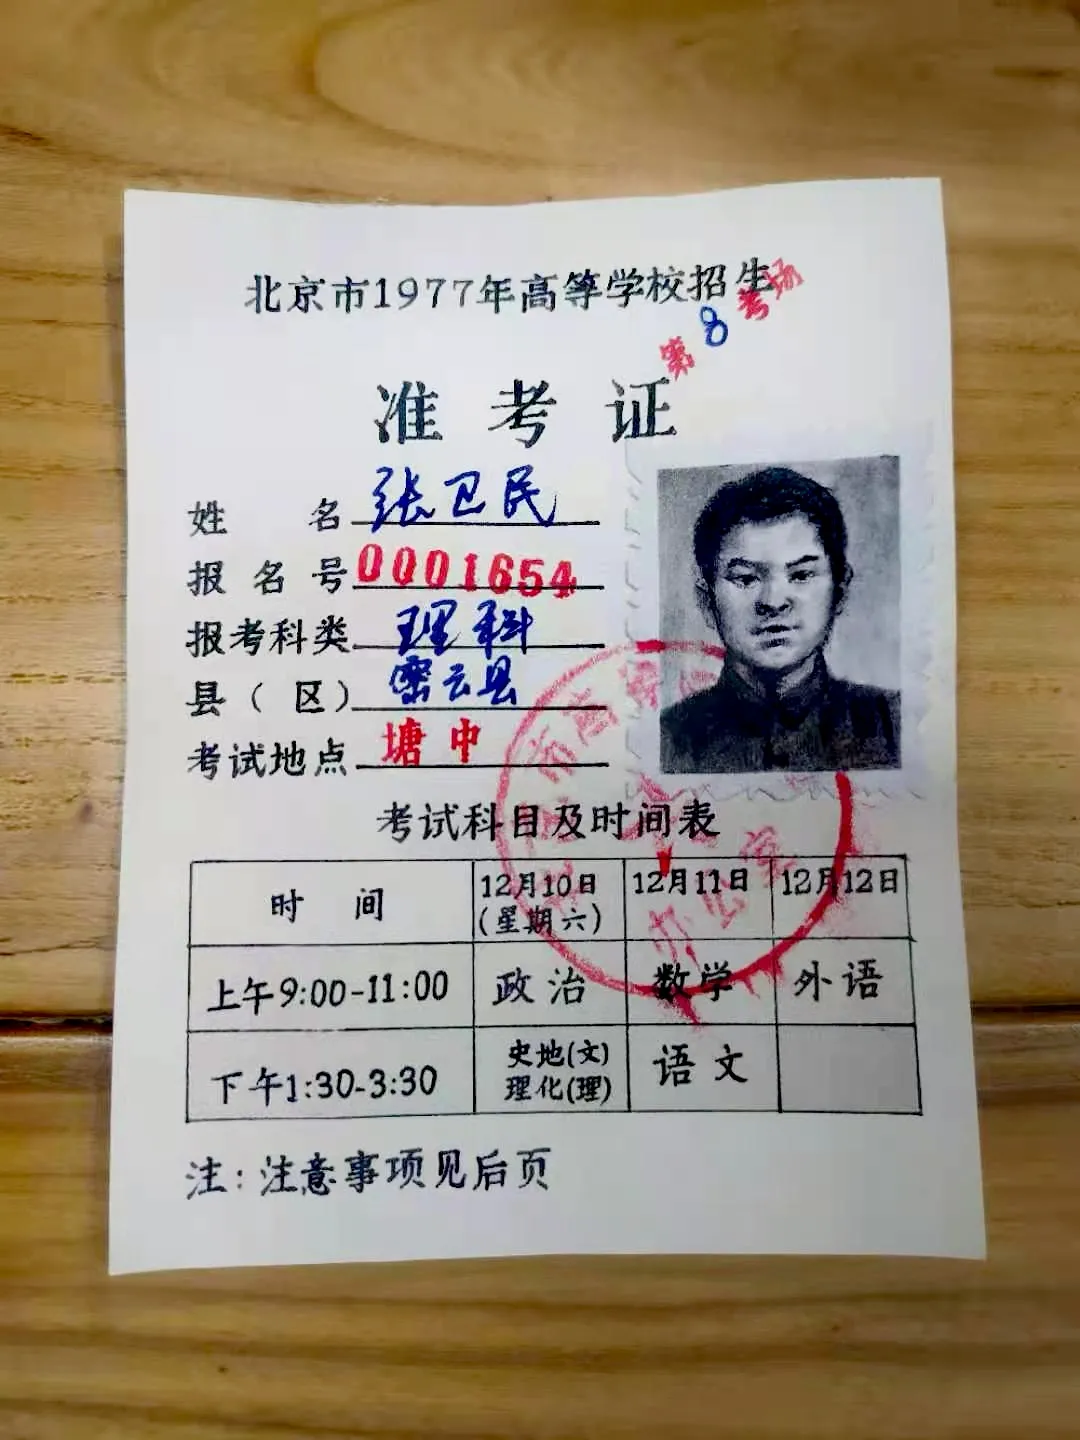 北京市1977年高等学校招生
第8考场
准考证
姓名 张卫民
报名号 0001654
报考科类 理科
县(区) 密云县
考试地点 塘中
考试科目及时间表
时间 12月10日(星期六) 12月11日 12月12日
上午9:00-11:00 政治 数学 外语
下午1:30-3:30 史地(文) 理化(理) 语文
注:注意事项见后页
市高
办公室